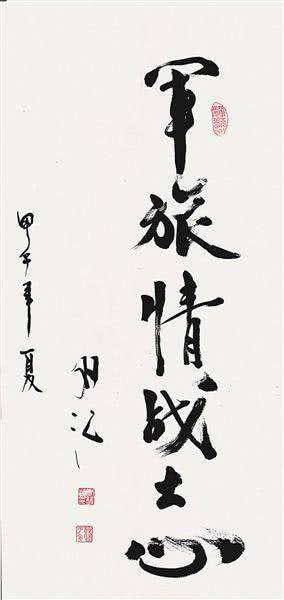 軍旅情战士心
甲午年夏